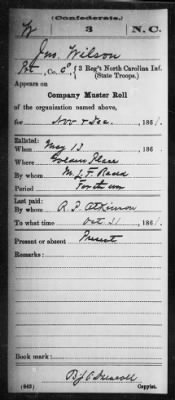 (Confederate.)
W 3 N.C.
Jno. Wilson
Pvt, Co. C, 3 Reg't North Carolina Inf.
(State Troops.)
Appears on
Company Muster Roll
of the organization named above,
for Nov & Dec, 1861.
Enlisted:
When May 13, 186
Where Golden Place
By whom M. L. F.
Period For the war
Last paid:
By whom R. F. Atkinson
To what time Oct 31, 1861.
Present or absent Present
Remarks:
Book mark:
(642)
Copyist.